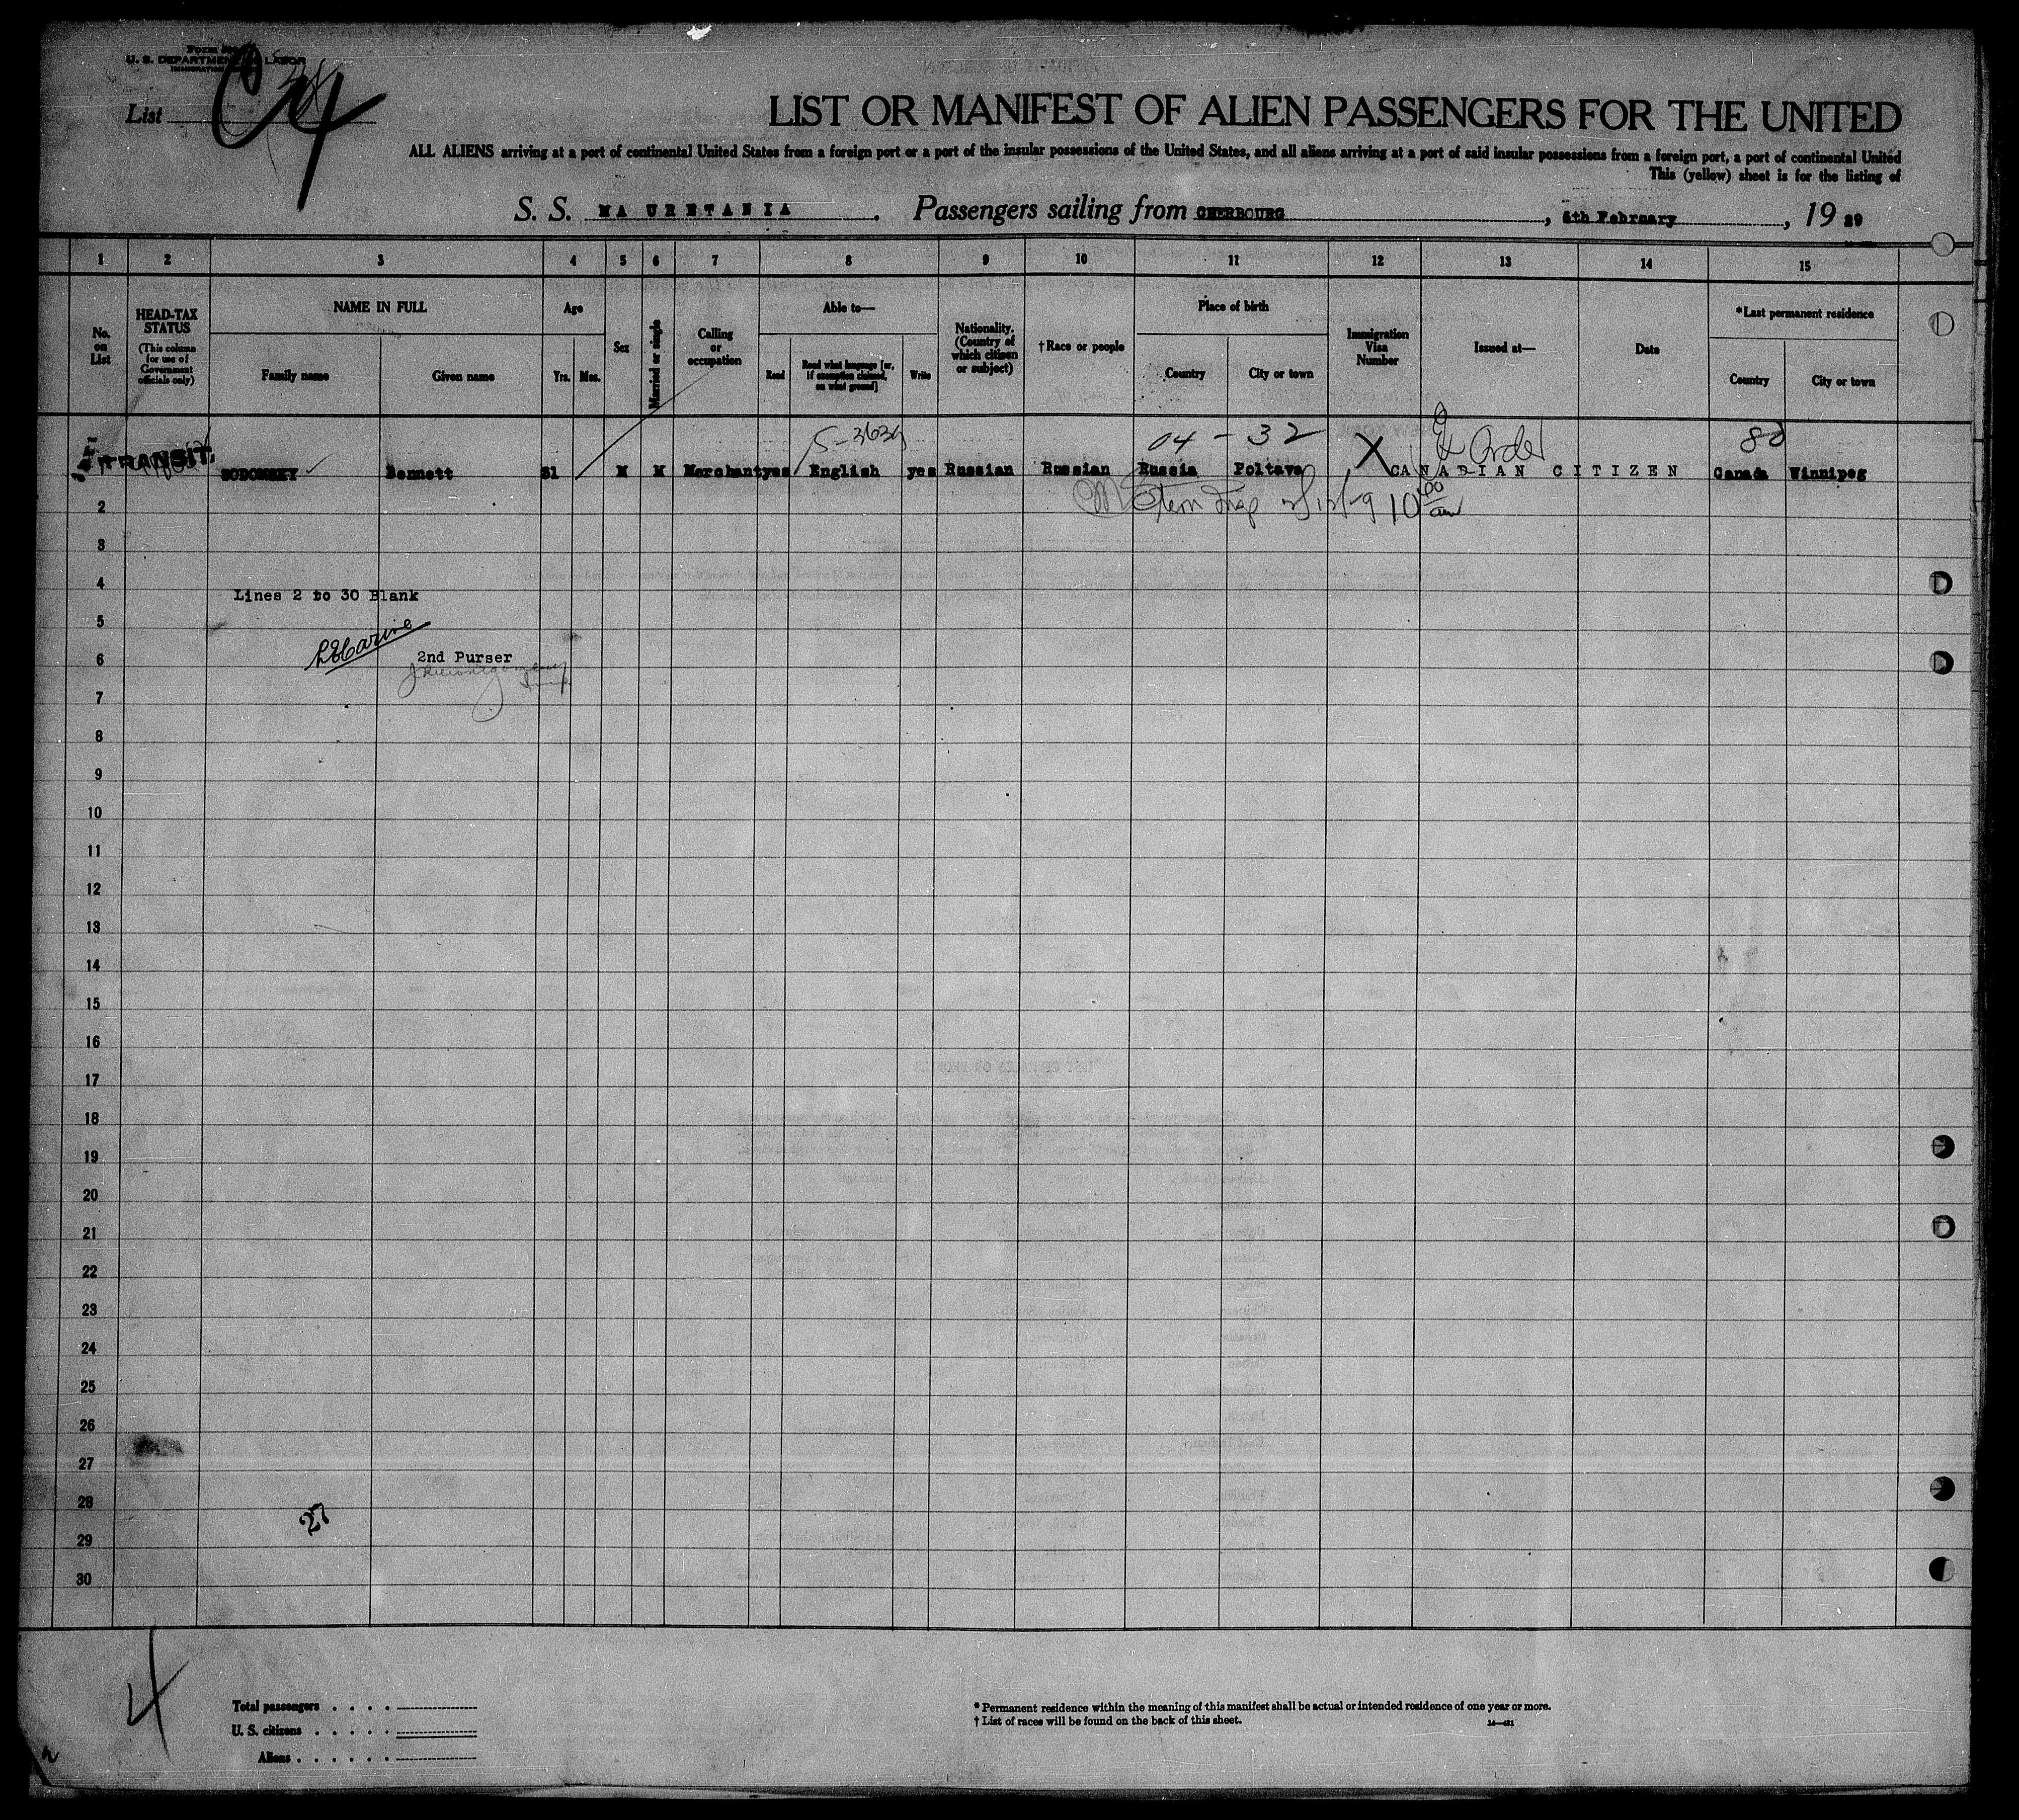 U. S. DEPARTMENT LABOR
List C 4
LIST OR MANIFEST OF ALIEN PASSENGERS FOR THE UNITED
ALL ALIENS arriving at a port of continental United States from a foreign port or a port of the insular possessions of the United States, and all aliens arriving at a port of said insular possessions from a foreign port, a port of continental United
This (yellow) sheet is for the listing of
S. S. MAURETANIA . Passengers sailing from CHERBOURG , 6th February , 19 29
1 2 3 4 5 6 7 8 9 10 11 12 13 14 15
No. on List
HEAD-TAX STATUS
(This column for use of Government officials only)
NAME IN FULL
Family name Given name
Age
Yrs. Mos.
Sex
Married or single
Calling or occupation
Able to—
Read Read what language [or, if exemption claimed, on what ground] Write
Nationality. (Country of which citizen or subject)
†Race or people
Place of birth
Country City or town
Immigration Visa Number
Issued at—
Date
*Last permanent residence
Country City or town
04 - 32 X Order
TRANSIT Bennett 31 M M Merchant yes English yes Russian Russian Russia Poltava CANADIAN CITIZEN Canada Winnipeg
2
3
4
Lines 2 to 30 Blank
5
6 2nd Purser
7
8
9
10
11
12
13
14
15
16
17
18
19
20
21
22
23
24
25
26
27
28
27
29
30
4
Total passengers
U. S. citizens
Aliens
* Permanent residence within the meaning of this manifest shall be actual or intended residence of one year or more.
† List of races will be found on the back of this sheet.